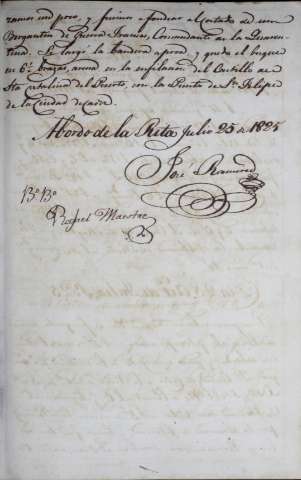 ramos un poco, y fuimos a fondear al Costado de un
Bergantin de Guerra Frances, Comandante en la
Se largó la bandera a proa, y quedó el buque
en 6 brazas, arena en la enfilacion del Castillo de
Sta Catalina del Puerto, con la Punta de Sn Felipe
de la Ciudad de Cadiz.
Abordo de la Rita Julio 25 de 1825
José Ramirez
Bº Bº
Rafael Maestre